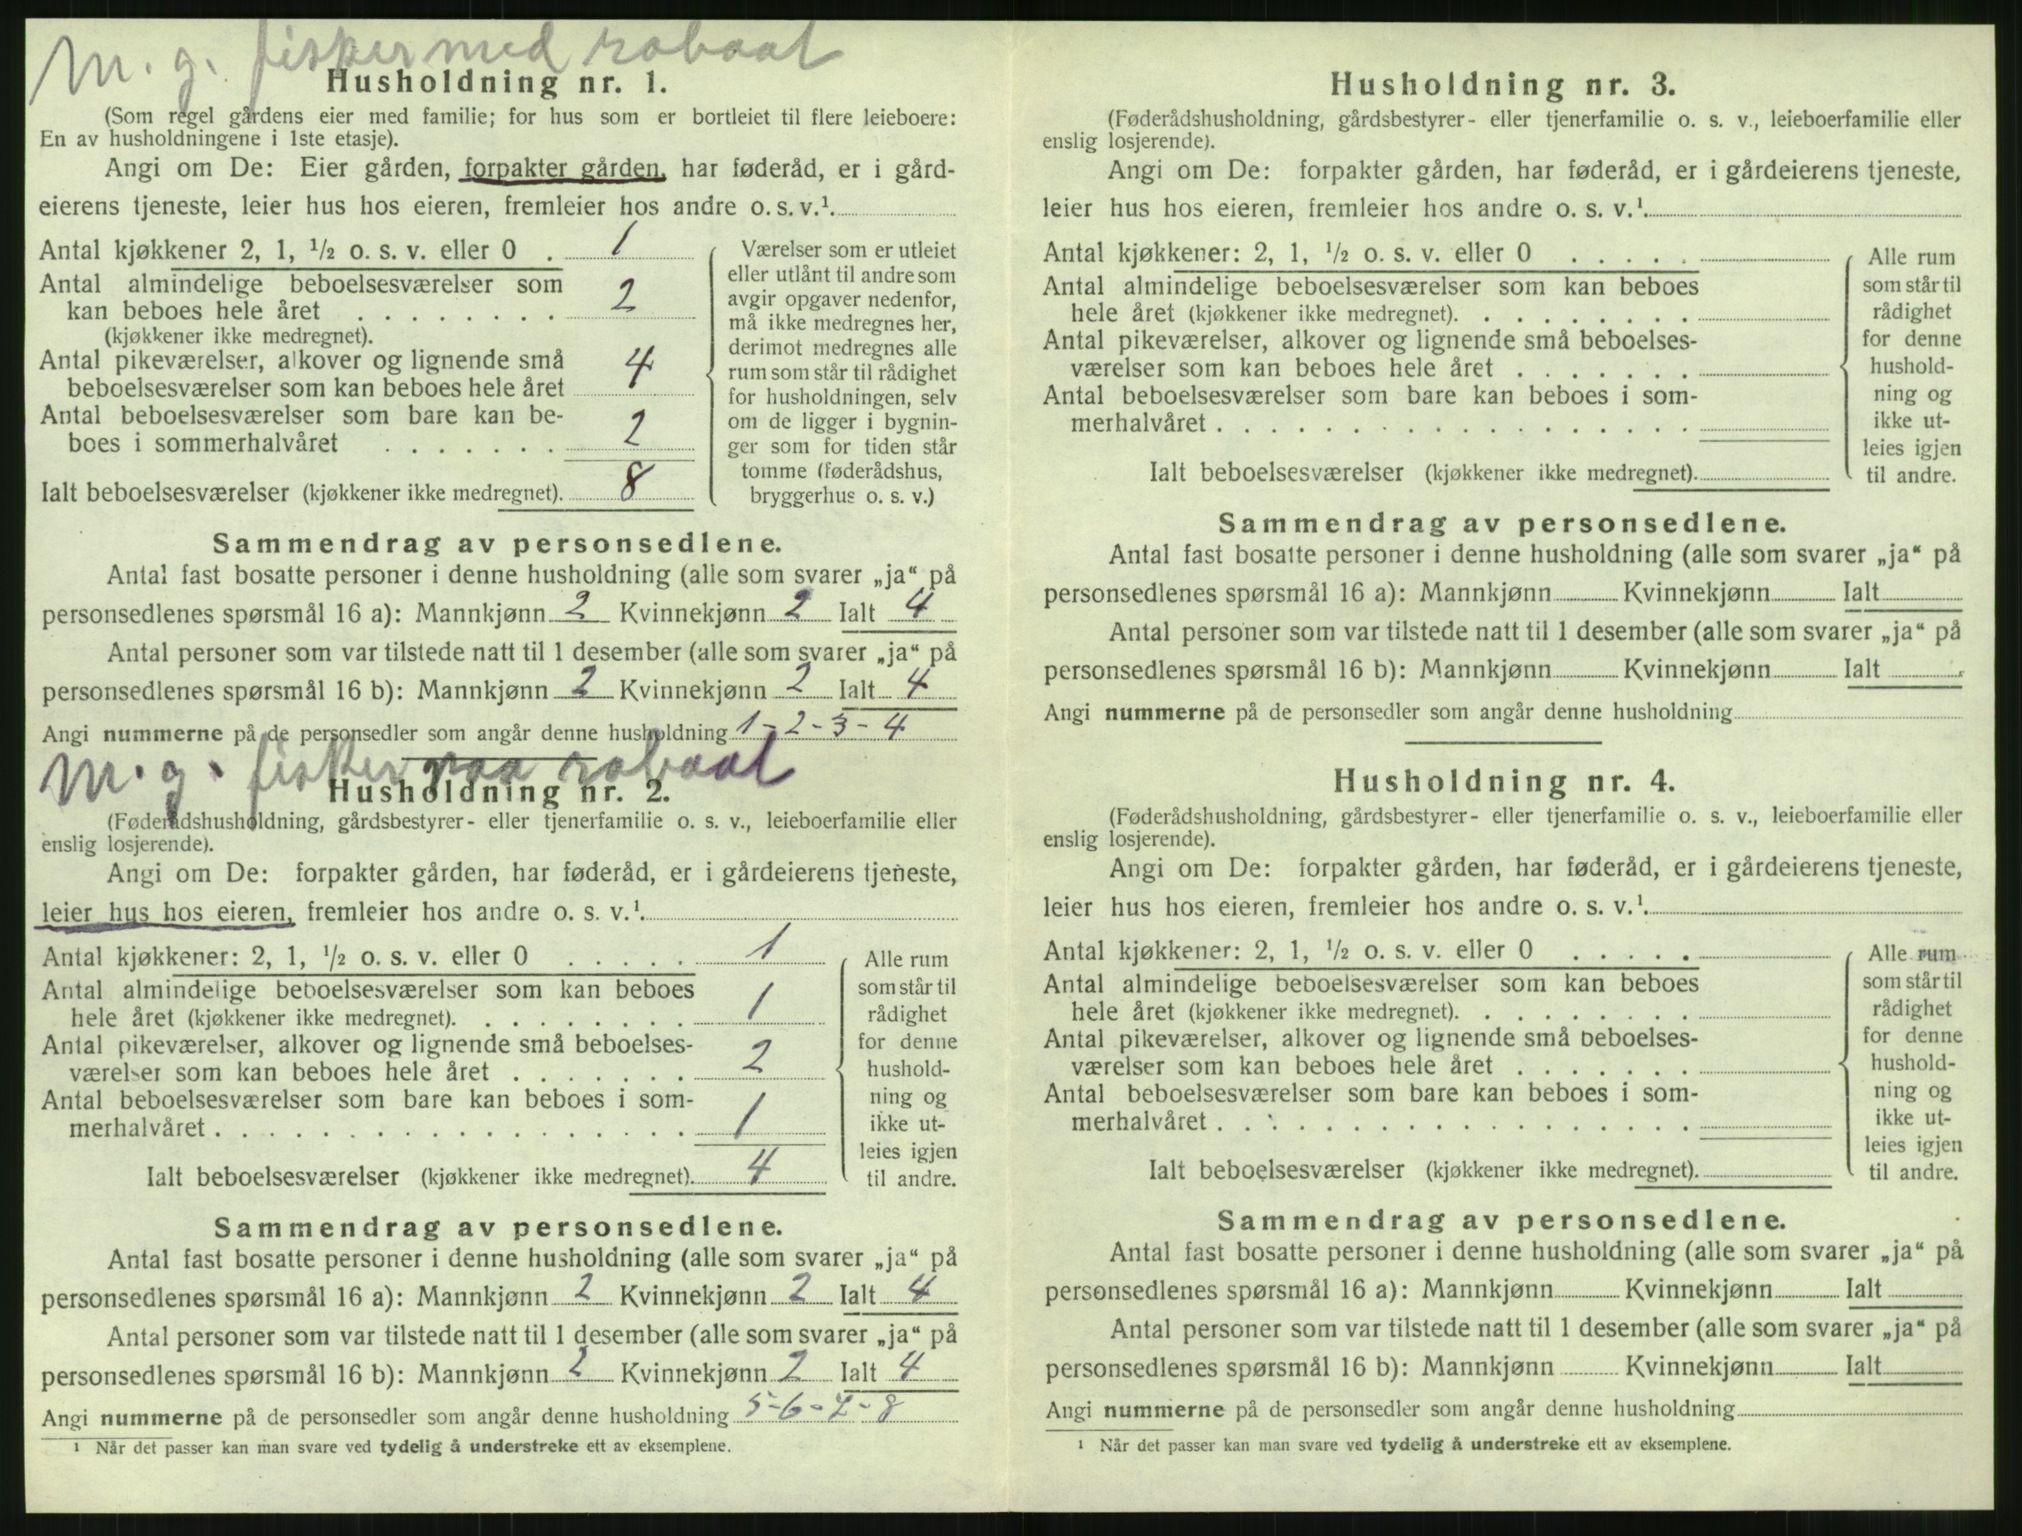 M. g. fisker med robaat
Husholdning nr. 1.
(Som regel gårdens eier med familie; for hus som er bortleiet til flere leieboere:
En av husholdningene i 1ste etasje).
Angi om De: Eier gården, forpakter gården, har føderåd, er i gård-
eierens tjeneste, leier hus hos eieren, fremleier hos andre o. s. v.¹
Antal kjøkkener 2, 1, ½ o. s. v. eller 0 . 1
Antal almindelige beboelsesværelser som
kan beboes hele året . . . . . . . . 2
(kjøkkener ikke medregnet).
Antal pikeværelser, alkover og lignende små
beboelsesværelser som kan beboes hele året 4
Antal beboelsesværelser som bare kan be-
boes i sommerhalvåret . . . . . . . 2
Ialt beboelsesværelser (kjøkkener ikke medregnet). 8
Værelser som er utleiet
eller utlånt til andre som
avgir opgaver nedenfor,
må ikke medregnes her,
derimot medregnes alle
rum som står til rådighet
for husholdningen, selv
om de ligger i bygnin-
ger som for tiden står
tomme (føderådshus,
bryggerhus o. s. v.)
Sammendrag av personsedlene.
Antal fast bosatte personer i denne husholdning (alle som svarer „ja“ på
personsedlenes spørsmål 16 a): Mannkjønn 2 Kvinnekjønn 2 Ialt 4
Antal personer som var tilstede natt til 1 desember (alle som svarer „ja“ på
personsedlenes spørsmål 16 b): Mannkjønn 2 Kvinnekjønn 2 Ialt 4
Angi nummerne på de personsedler som angår denne husholdning 1-2-3-4
M. g. fisker paa robaat
Husholdning nr. 2.
(Føderådshusholdning, gårdsbestyrer- eller tjenerfamilie o. s. v., leieboerfamilie eller
enslig losjerende).
Angi om De: forpakter gården, har føderåd, er i gårdeierens tjeneste,
leier hus hos eieren, fremleier hos andre o. s. v.¹
Antal kjøkkener: 2, 1, ½ o. s. v. eller 0 . . . . . 1
Antal almindelige beboelsesværelser som kan beboes
hele året (kjøkkener ikke medregnet). . . . . . . . . 1
Antal pikeværelser, alkover og lignende små beboelses-
værelser som kan beboes hele året . . . . . . . 2
Antal beboelsesværelser som bare kan beboes i som-
merhalvåret . . . . . . . . . . . . . . . . . . 1
Ialt beboelsesværelser (kjøkkener ikke medregnet). 4
Alle rum
som står til
rådighet
for denne
hushold-
ning og
ikke ut-
leies igjen
til andre.
Sammendrag av personsedlene.
Antal fast bosatte personer i denne husholdning (alle som svarer „ja“ på
personsedlenes spørsmål 16 a): Mannkjønn 2 Kvinnekjønn 2 Ialt 4
Antal personer som var tilstede natt til 1 desember (alle som svarer „ja“ på
personsedlenes spørsmål 16 b): Mannkjønn 2 Kvinnekjønn 2 Ialt 4
Angi nummerne på de personsedler som angår denne husholdning 5-6-7-8
¹ Når det passer kan man svare ved tydelig å understreke ett av eksemplene.
Husholdning nr. 3.
(Føderådshusholdning, gårdsbestyrer- eller tjenerfamilie o. s. v., leieboerfamilie eller
enslig losjerende).
Angi om De: forpakter gården, har føderåd, er i gårdeierens tjeneste,
leier hus hos eieren, fremleier hos andre o. s. v.¹
Antal kjøkkener: 2, 1, ½ o. s. v. eller 0 . . . . .
Antal almindelige beboelsesværelser som kan beboes
hele året (kjøkkener ikke medregnet). . . . . . . . .
Antal pikeværelser, alkover og lignende små beboelses-
værelser som kan beboes hele året . . . . . . .
Antal beboelsesværelser som bare kan beboes i som-
merhalvåret . . . . . . . . . . . . . . . . . .
Ialt beboelsesværelser (kjøkkener ikke medregnet).
Alle rum
som står til
rådighet
for denne
hushold-
ning og
ikke ut-
leies igjen
til andre.
Sammendrag av personsedlene.
Antal fast bosatte personer i denne husholdning (alle som svarer „ja“ på
personsedlenes spørsmål 16 a): Mannkjønn Kvinnekjønn Ialt
Antal personer som var tilstede natt til 1 desember (alle som svarer „ja“ på
personsedlenes spørsmål 16 b): Mannkjønn Kvinnekjønn Ialt
Angi nummerne på de personsedler som angår denne husholdning
Husholdning nr. 4.
(Føderådshusholdning, gårdsbestyrer- eller tjenerfamilie o. s. v., leieboerfamilie eller
enslig losjerende).
Angi om De: forpakter gården, har føderåd, er i gårdeierens tjeneste,
leier hus hos eieren, fremleier hos andre o. s. v.¹
Antal kjøkkener: 2, 1, ½ o. s. v. eller 0 . . . . .
Antal almindelige beboelsesværelser som kan beboes
hele året (kjøkkener ikke medregnet). . . . . . . . .
Antal pikeværelser, alkover og lignende små beboelses-
værelser som kan beboes hele året . . . . . . .
Antal beboelsesværelser som bare kan beboes i som-
merhalvåret . . . . . . . . . . . . . . . . . .
Ialt beboelsesværelser (kjøkkener ikke medregnet).
Alle rum
som står til
rådighet
for denne
hushold-
ning og
ikke ut-
leies igjen
til andre.
Sammendrag av personsedlene.
Antal fast bosatte personer i denne husholdning (alle som svarer „ja“ på
personsedlenes spørsmål 16 a): Mannkjønn Kvinnekjønn Ialt
Antal personer som var tilstede natt til 1 desember (alle som svarer „ja“ på
personsedlenes spørsmål 16 b): Mannkjønn Kvinnekjønn Ialt
Angi nummerne på de personsedler som angår denne husholdning
¹ Når det passer kan man svare ved tydelig å understreke ett av eksemplene.